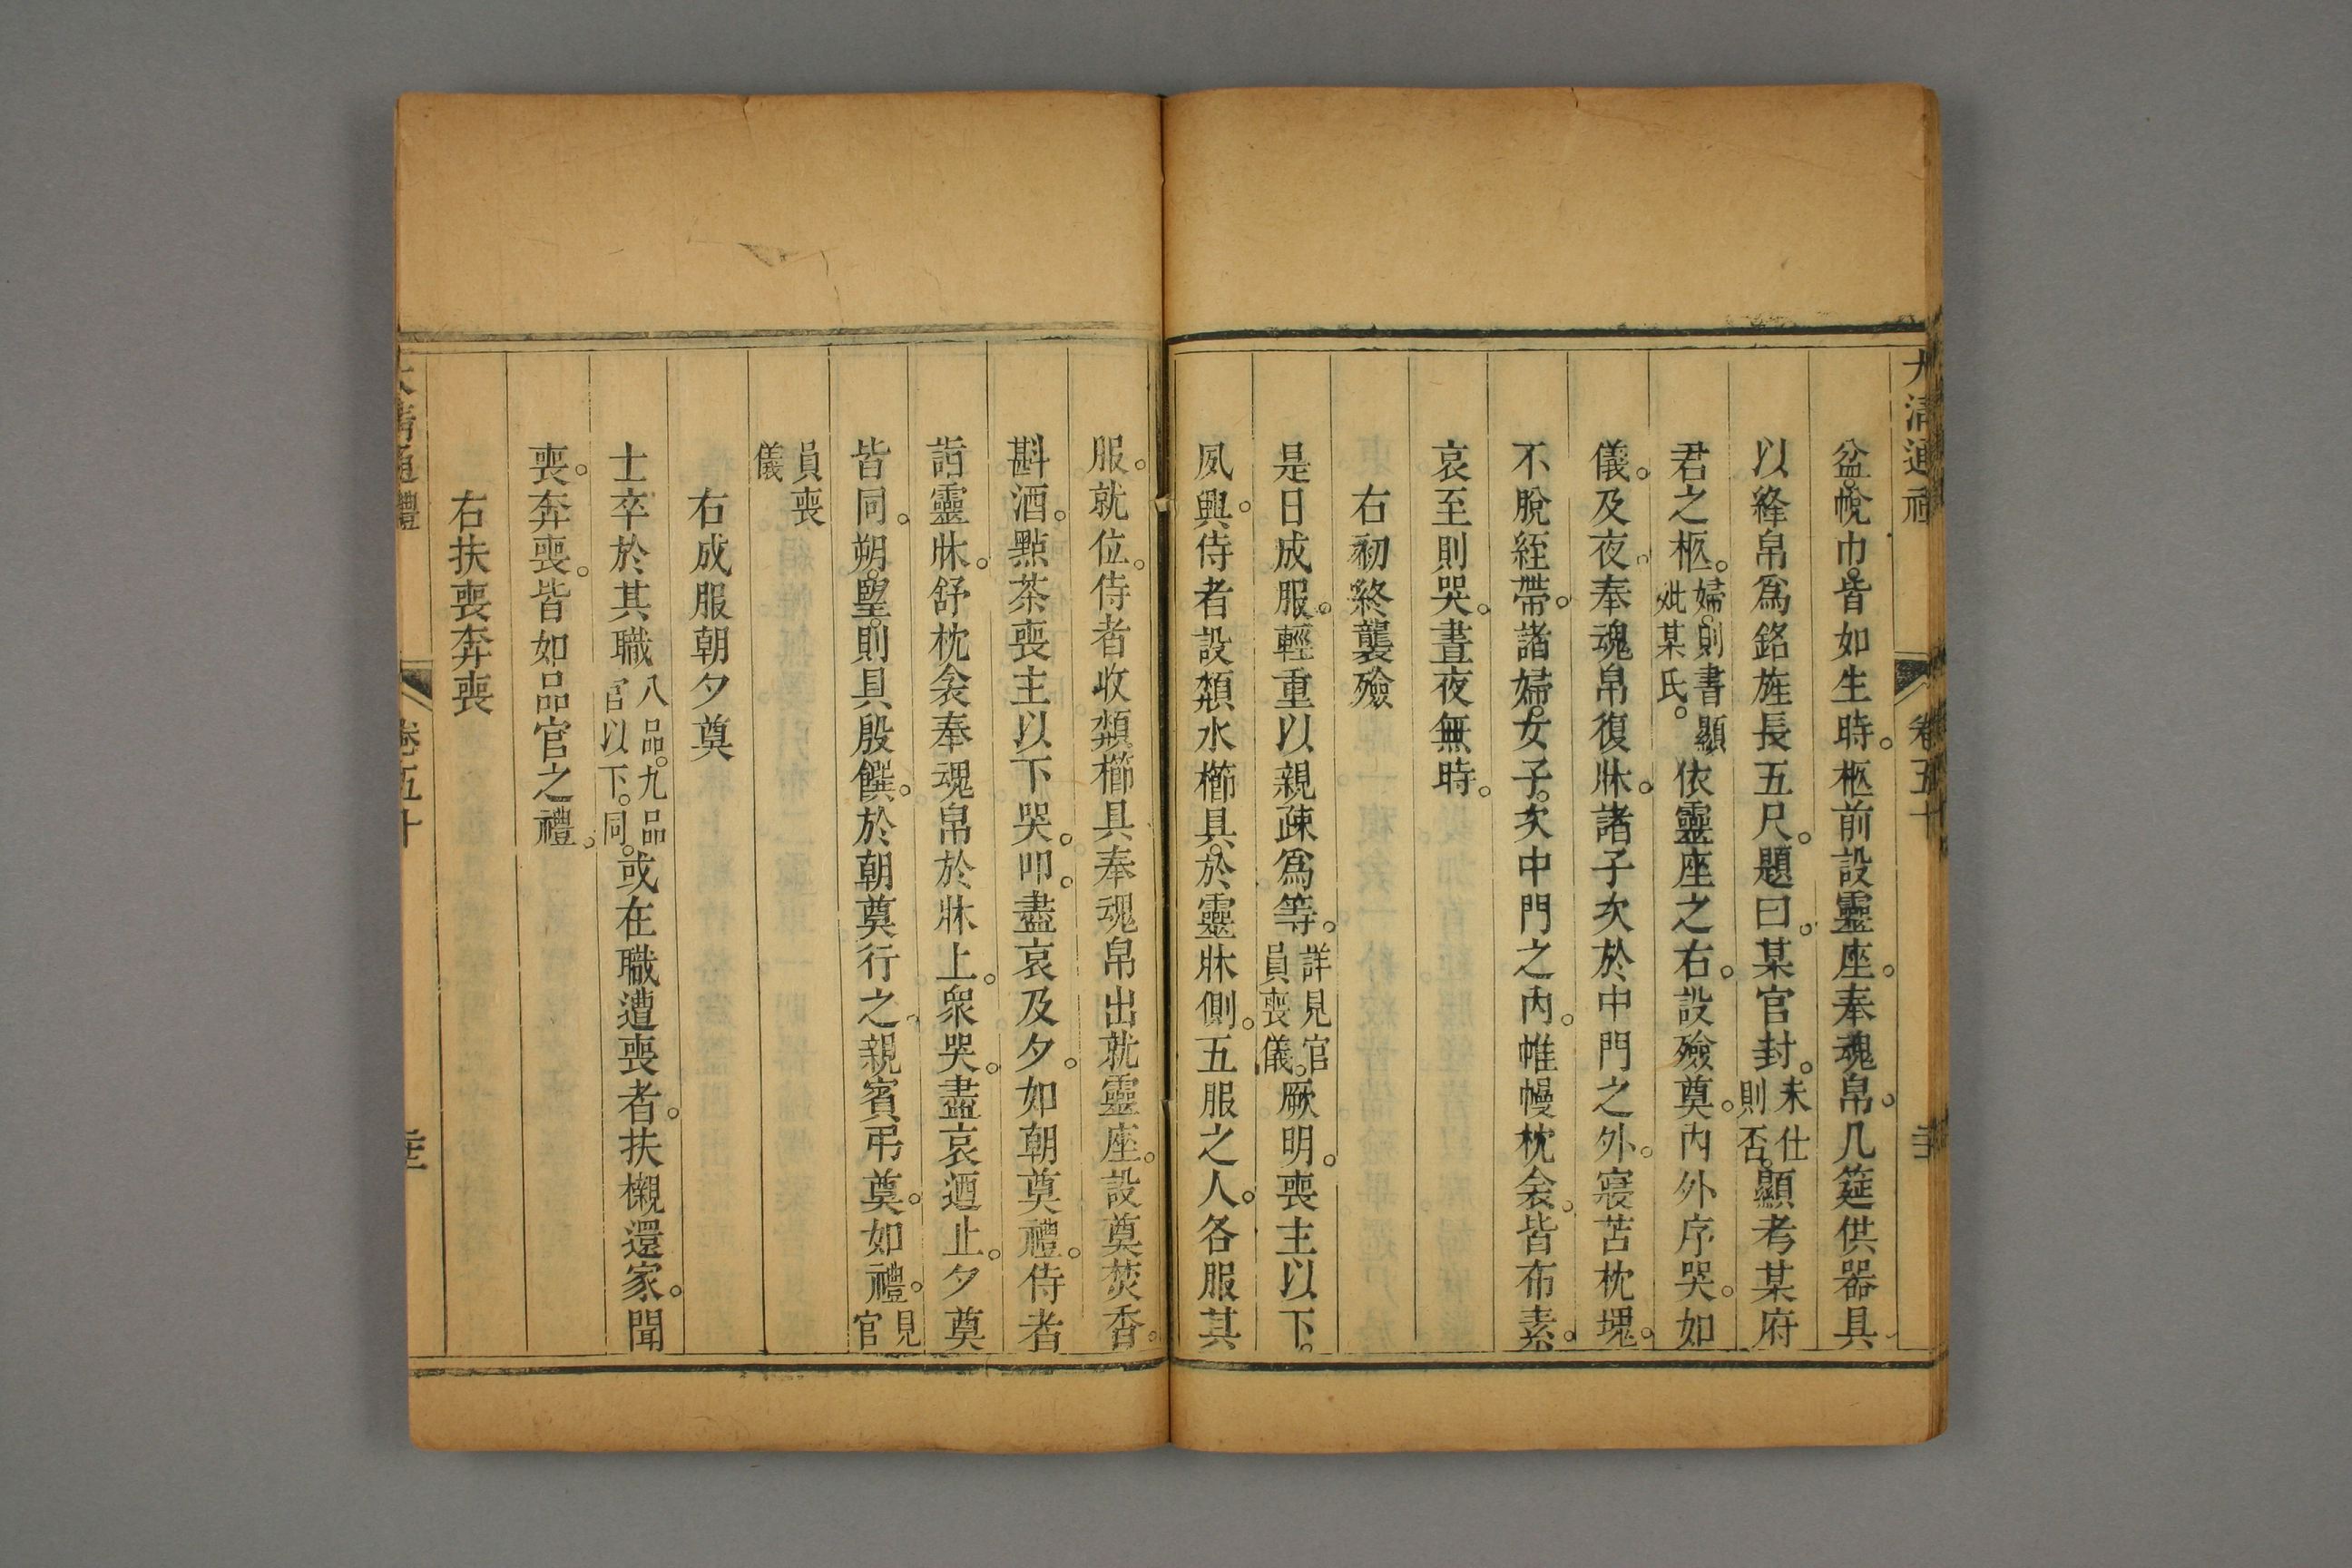 大清通禮 卷五十
盆。帨巾。皆如生時。柩前設靈座。奉魂帛。几筵供器具
以絳帛爲銘旌長五尺。題曰。某官封。未仕則否。顯考某府
君之柩。婦。則書顯妣某氏。依靈座之右。設殮奠。內外序哭。如
儀。及夜。奉魂帛復牀。諸子次於中門之外。寢苫枕塊。
不脫絰帶。諸婦。女子。次中門之內。帷幔枕衾。皆布素。
哀至則哭。晝夜無時。
右初終襲殮
是日成服。輕重以親疎爲等。詳見官員喪儀。厥明。喪主以下。
夙興。侍者設頮水櫛具。於靈牀側。五服之人。各服其
服。就位。侍者收頮。櫛具奉魂帛出就靈座。設奠焚香。
斟酒。點茶喪主以下哭。叩。盡哀及夕。如朝奠禮。侍者
詣靈牀。舒枕衾奉魂帛於牀上。衆哭。盡哀迺止。夕奠
皆同。朔。朢。則具殷饌。於朝奠行之。親賓弔奠。如禮。見官
員喪儀
右成服朝夕奠
士卒於其職八品。九品官以下。同。或在職遭喪者。扶櫬還家。聞
喪。奔喪。皆如品官之禮。
右扶喪奔喪
大清通禮 卷五十